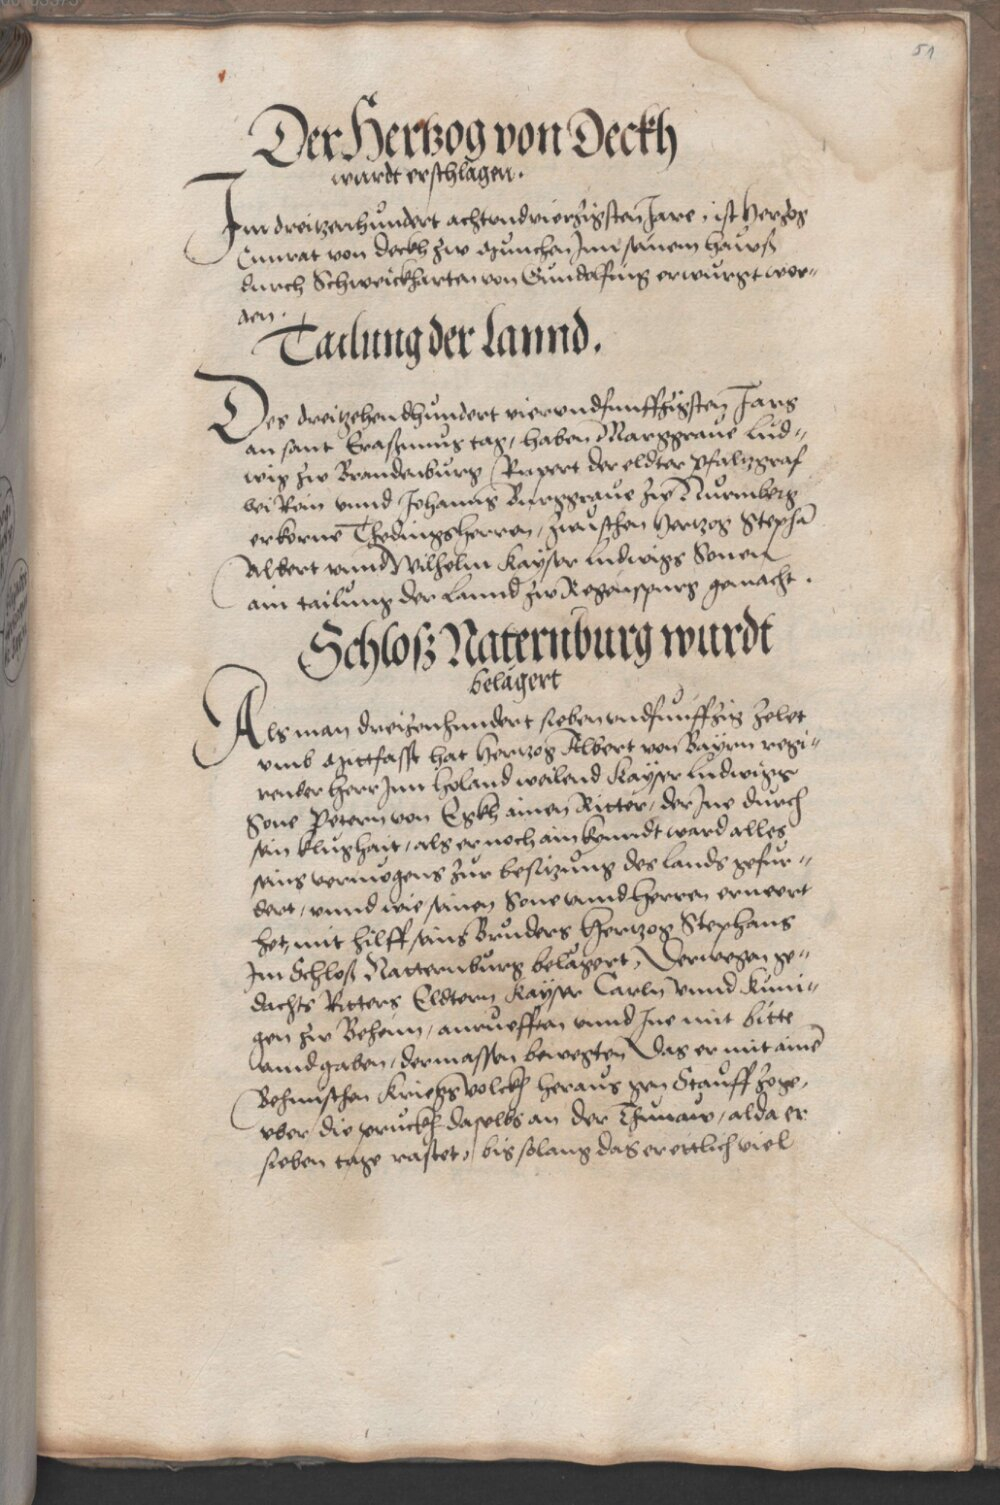 51
Der Hertzog von Deckh
wardt erschlagen.
Im dreitzenhundert achtvndvierzigisten Jare, ist Hertzog
Cunrat von Deckh zw Munchen Inn seinem hauß
durch Schweickharten von Gundelfing erwurgt wor„
den.
Tailung der Lannd.
Des dreitzehendhundert viervndfunffzigisten Jars
an sant Erasimus tag, haben Marggraue Lud„
wig zw Brandenburg Rupert der eldter Pfaltzgraf
bei Rein vnnd Johanns Burggraue zw Nurmberg
erkorne Thedingsherren, zwuschen Hertzog Stephan̄
Albert vnnd Wilhelm Kayser Ludwigs Sonen
ain tailung der Lannd zw Regenspurg gemacht.
Schloß Naternburg wurdt
belagert
Als man dreizenhundert siebenvndfunffzig zelet
vmb Mittfasst hat Hertzog Albert von Bayrn regi„
render Herr Inn Holand weilend Kayser Ludwigs
Sone Petern von Egkh ainen Ritter, der Ine durch
sein klughait, als er noch ain kynndt ward alles
seins vermogens zur besizung des lands gefur„
dert, vnnd wie seinen Sone vnnd Herren erneert
het, mit hilff seins Bruders Hertzog Stephans
Im Schloß Natternburg belagert, Derwegen ge„
dachts Ritters Eldtern Kayser Carln vnnd Kuni„
gen zw Beheim, anruefften vnnd Ine mit bitte
vnnd gaben, dermassen bewegten Das er mit ainē
Behmischen Kriegsvolckh heraus gen Stauff zoge,
vber die prückh daselbs an der Thunaw, alda er
sieben tage rastet, bis solang das er ettlich viel